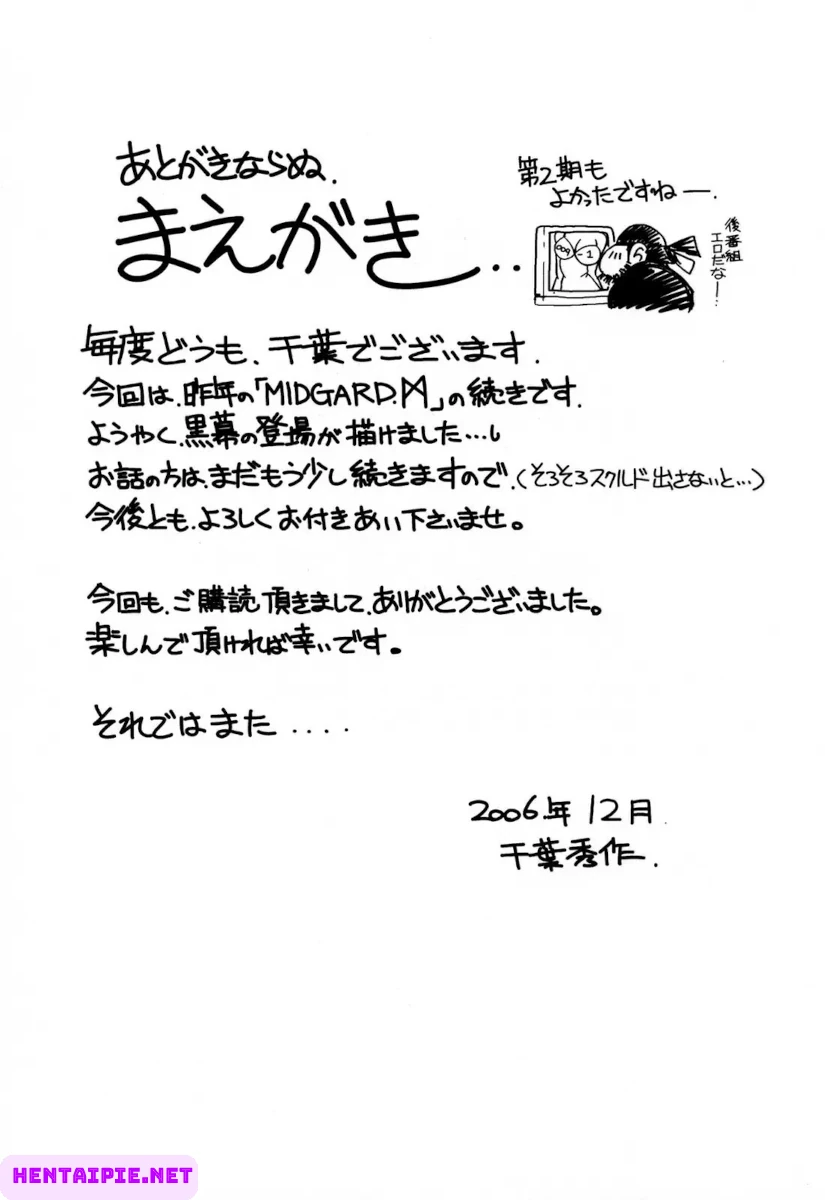 あとがきならぬ.
まえがき..
第2期も
よかったですねー.
後番組
エロだなー..
毎度どうも、千葉でございます.
今回は、昨年の「MIDGARD.ᛞ」の続きです.
ようやく、黒幕の登場が描けました…。
お話の方は、まだもう少し続きますので、(そろそろスクルド出さないと…)
今後とも、よろしくお付きあい下さいませ。
今回も、ご購読頂きまして、ありがとうございました。
楽しんで頂ければ幸いです。
それではまた ....
2006.年 12月
千葉秀作.
HENTAIPIE.NET